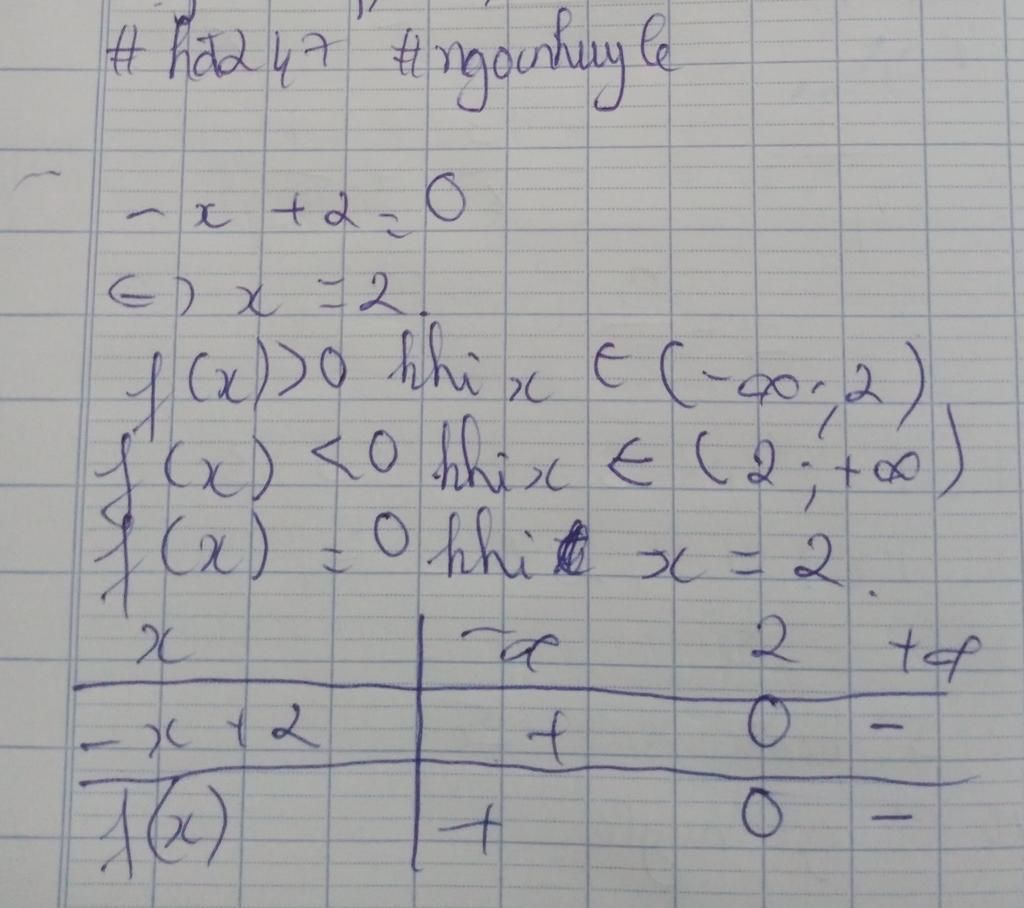 # hđ247 #ngocnhuyle
- x + 2 = 0
<=> x = 2.
f(x) > 0 khi x ∈ (-∞; 2)
f(x) < 0 khi x ∈ (2; +∞)
f(x) = 0 khi x = 2.
x | -∞ 2 +∞
- x + 2 | + 0 -
f(x) | + 0 -